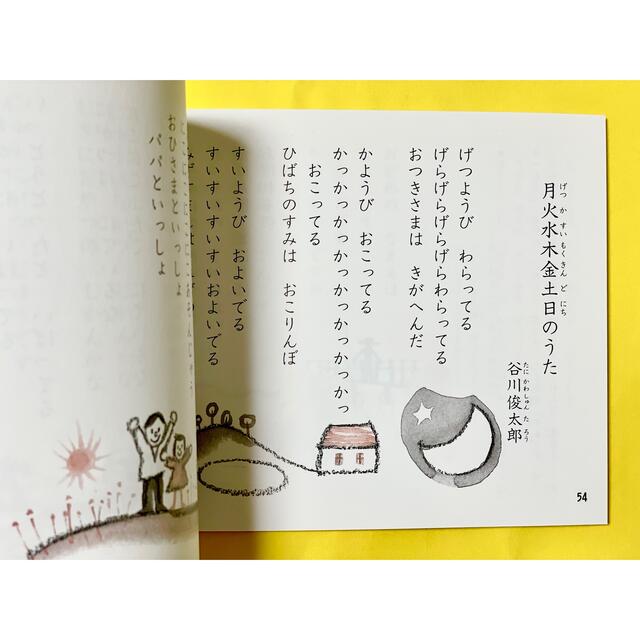 げつ か すい もく きん ど にち
月火水木金土日のうた
たに かわ しゅん た ろう
谷川俊太郎
げつようび わらってる
げらげらげらげらわらってる
おつきさまは きがへんだ
かようび おこってる
かっかっかっかっかっかっかっかっ
おこってる
ひばちのすみは おこりんぼ
すいようび およいでる
すいすいすいすいおよいでる
おひさまといっしょ
パパといっしょ
54